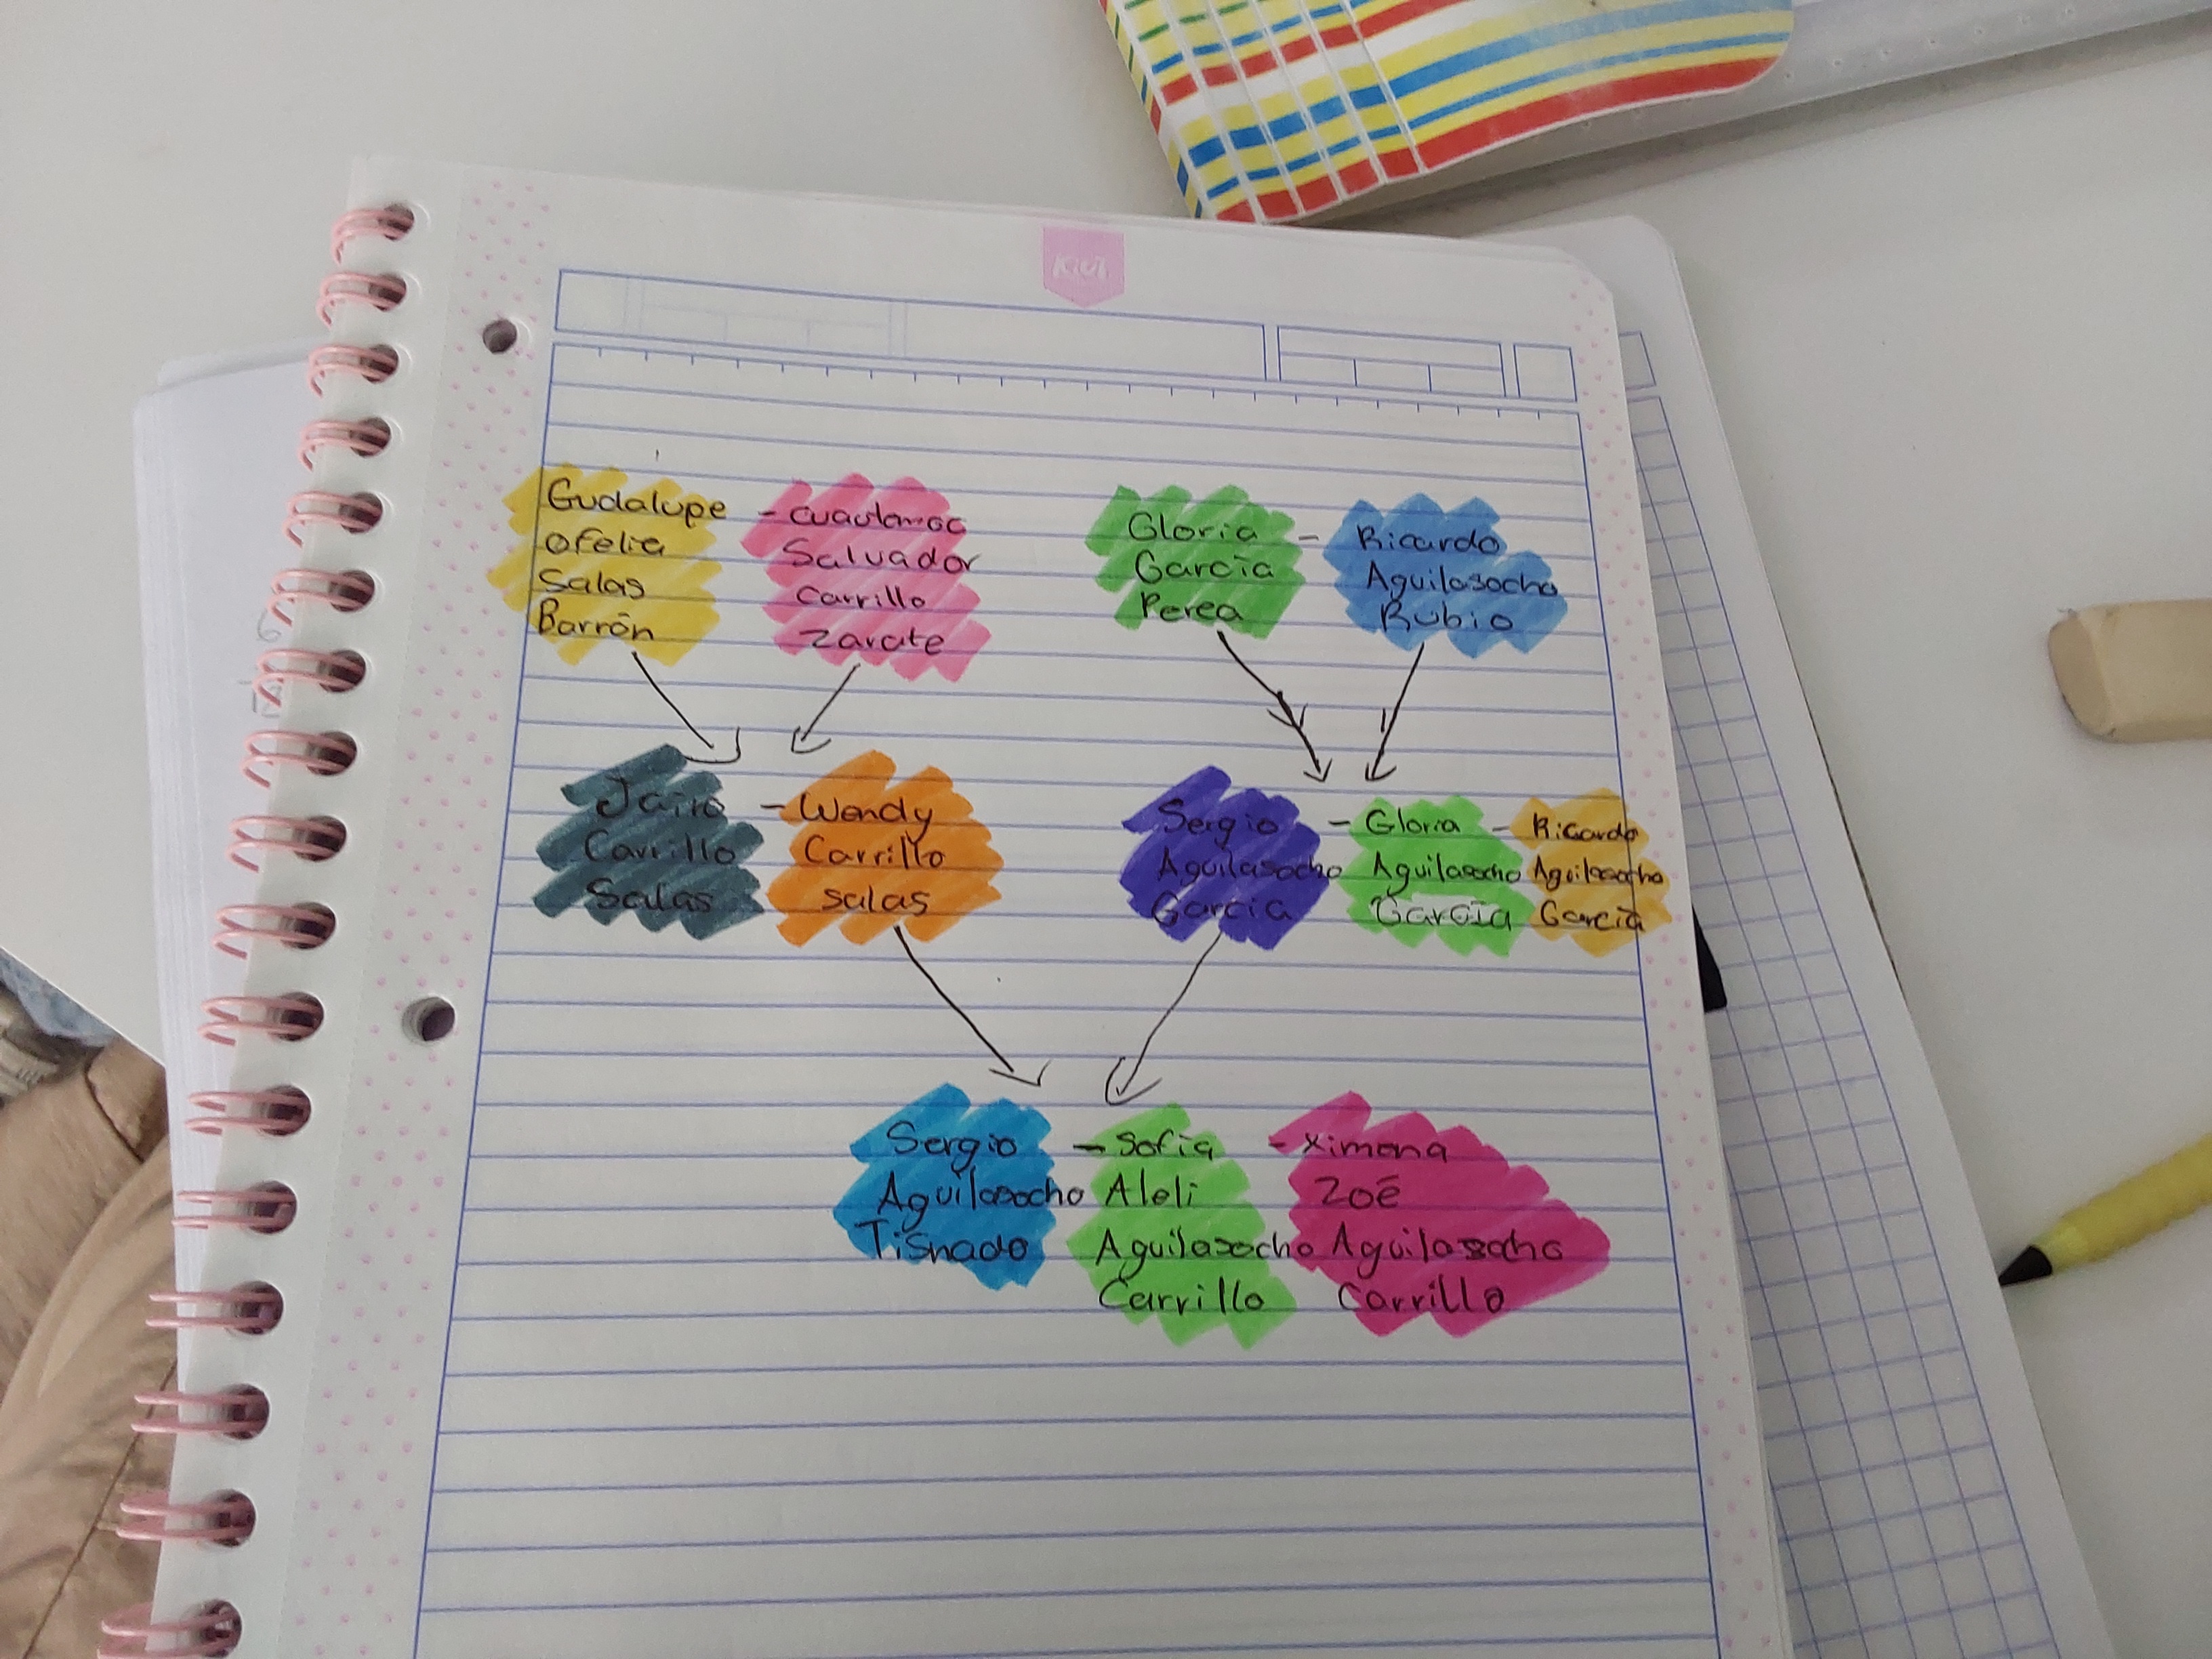 Kiut
Gudalupe
Ofelia
Salas
Barrón
- cuautemoc
Salvador
Carrillo
Zarate
Gloria
García
Perea
- Ricardo
Aguilasocho
Rubio
Jairo
Carrillo
Salas
- Wendy
Carrillo
salas
Sergio
Aguilasocho
García
- Gloria
Aguilasocho
García
- Ricardo
Aguilasocho
García
Sergio
Aguilasocho
Tisnado
- Sofía
Aleli
Aguilasocho
Carrillo
- Ximena
Zoé
Aguilasocho
Carrillo